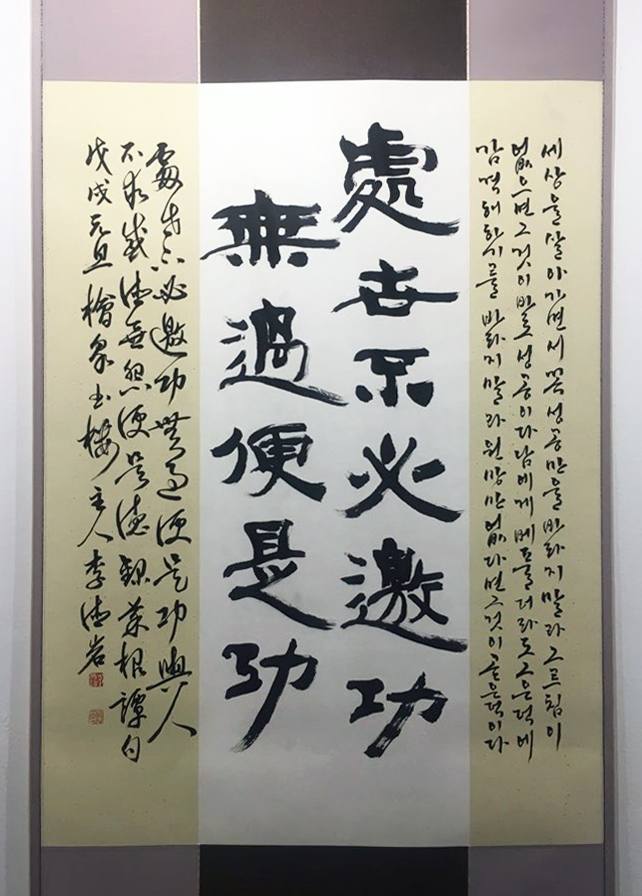 세상을살아가면서꼭성공만을바라지말라그르침이
없으면그것이바로성공이다남에게베풀더라도그은덕에
감격해하기를바라지말라원망만없다면그것이곧은덕이다
處世不必邀功
無過便是功
處世不必邀功無過便是功與人
不求感德無怨便是德錄菜根譚句
戊戌元旦檜樓主人李德岩